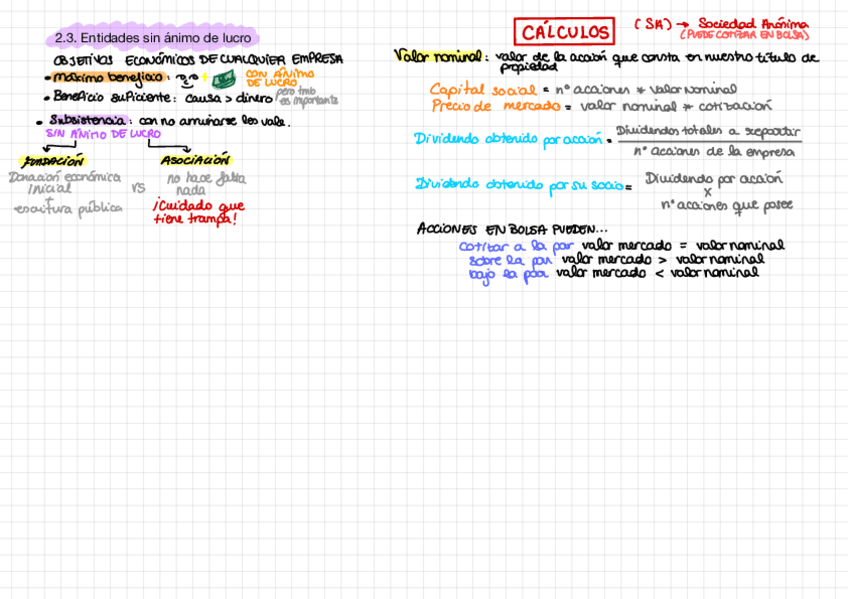 2.3. Entidades sin ánimo de lucro
OBJETIVOS ECONÓMICOS DE CUALQUIER EMPRESA
• Máximo beneficio: CON ÁNIMO DE LUCRO
• Beneficio suficiente: causa > dinero pero tmb es importante
• Subsistencia: con no arruinarse les vale.
SIN ÁNIMO DE LUCRO
FUNDACIÓN
Donación económica
inicial
+
escritura pública
VS
ASOCIACIÓN
no hace falta
nada
¡Cuidado que
tiene trampa!
CÁLCULOS
(SA) → Sociedad Anónima
(PUEDE COTIZAR EN BOLSA)
Valor nominal: valor de la acción que consta en nuestro título de
propiedad
Capital social = nº acciones * valor nominal
Precio de mercado = valor nominal * cotización
Dividendo obtenido por acción = Dividendos totales a repartir
nº acciones de la empresa
Dividendo obtenido por su socio = Dividendo por acción
x
nº acciones que posee
ACCIONES EN BOLSA PUEDEN...
cotizar a la par valor mercado = valor nominal
sobre la par valor mercado > valor nominal
bajo la par valor mercado < valor nominal